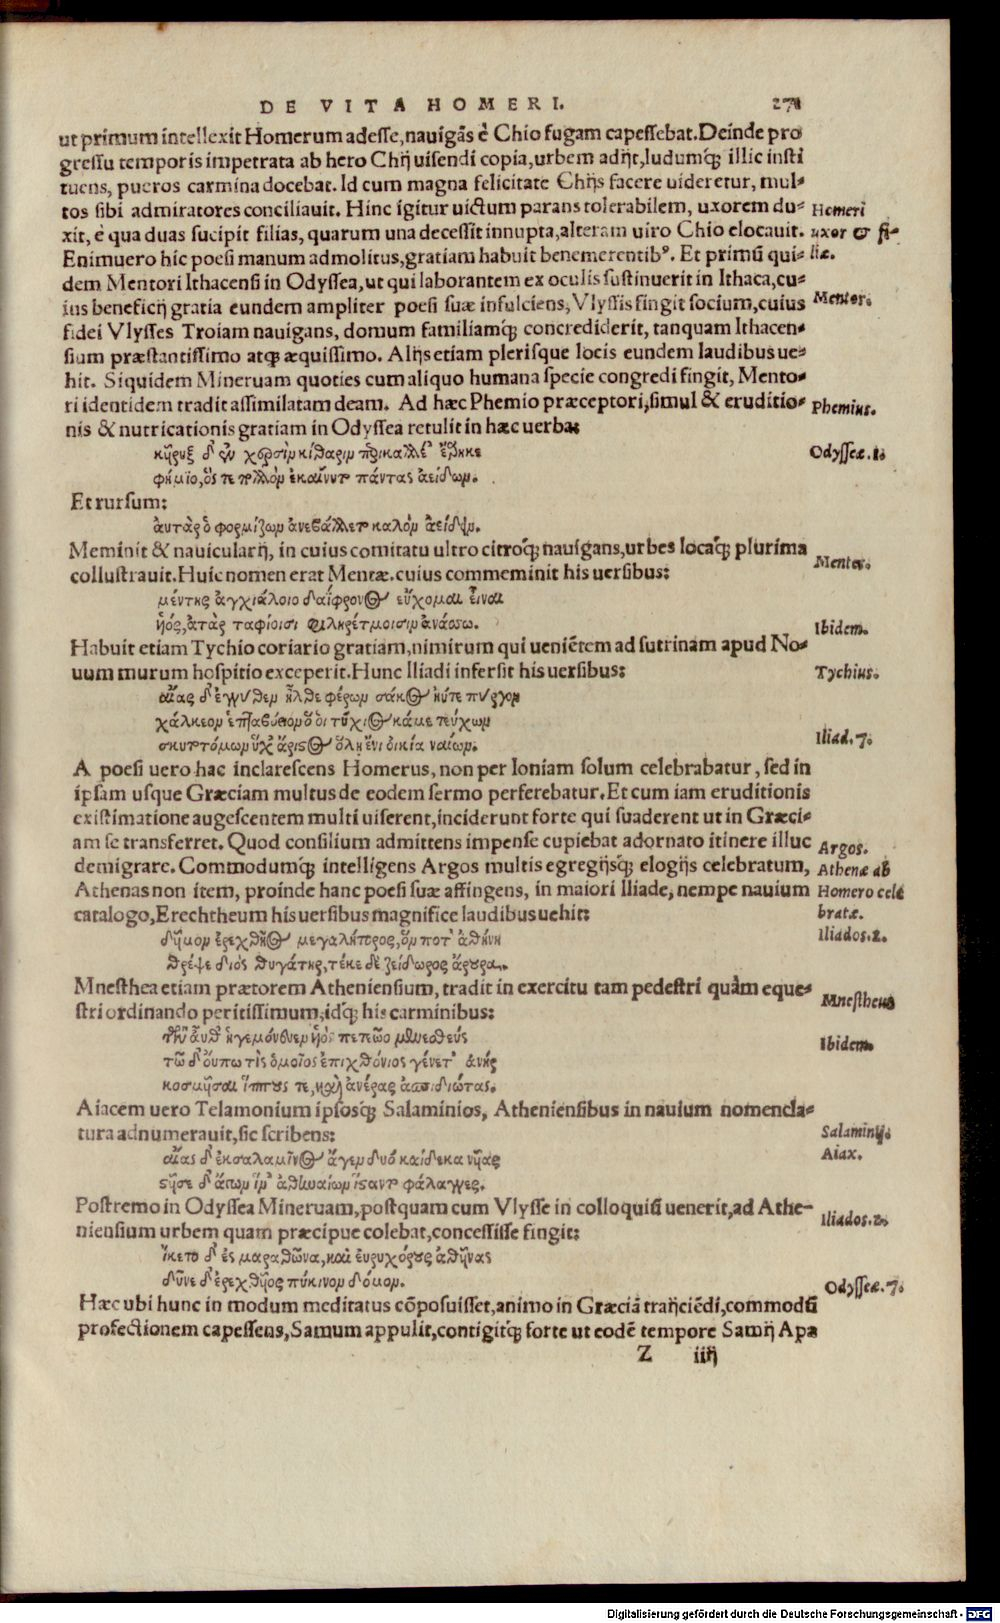 DE VITA HOMERI. 271
ut primum intellexit Homerum adesse, nauigãs è Chio fugam capessebat. Deinde pro
gressu temporis impetrata ab hero Chĳ uisendi copia, urbem adĳt, ludumq́; illic insti
tuens, pueros carmina docebat. Id cum magna felicitate Chĳs facere uideretur, mul-
tos sibi admiratores conciliauit. Hinc igitur uictum parans tolerabilem, uxorem du-
Homeri
xit, è qua duas sucipit filias, quarum una decessit innupta, alteram uiro Chio elocauit.
uxor & fi-
Enimuero hic poesi manum admolitus, gratiam habuit benemerentibꝰ. Et primũ qui-
liæ.
dem Mentori Ithacensi in Odyssea, ut qui laborantem ex oculis sustinuerit in Ithaca, cu-
ius beneficĳ gratia eundem ampliter poesi suæ infulciens, Vlyssis fingit socium, cuius
Mentor.
fidei Vlysses Troiam nauigans, domum familiamq́; concrediderit, tanquam Ithacen-
sium præstantissimo atq; æquissimo. Alĳs etiam plerisque locis eundem laudibus ue-
hit. Siquidem Mineruam quoties cum aliquo humana specie congredi fingit, Mento-
ri identidem tradit assimilatam deam. Ad hæc Phemio præceptori, simul & eruditio-
Phemius.
nis & nutricationis gratiam in Odyssea retulit in hæc uerba:
κῆρυξ δ' ἐν χερσὶν κίθαριν περικαλλέ' ἔθηκε
Odysseæ. 1.
φημίῳ, ὅς τε πολλὸν ἐκαίνυτ πάντας ἀείδων.
Et rursum:
αὐτὰρ ὁ φορμίζων ἀνεβάλλετ καλὸν ἀείδειν.
Meminit & nauicularĳ, in cuius comitatu ultro citroq́; nauigans, urbes locaq́; plurima
Mentes.
collustrauit. Huic nomen erat Mentæ. cuius commeminit his uersibus:
μέντης ἀγχιάλοιο δαΐφρονος εὔχομαι εἶναι
ὑός, ἀτὰρ ταφίοισι φιληρέτμοισιν ἀνάσσω.
Ibidem.
Habuit etiam Tychio coriario gratiam, nimirum qui ueniẽtem ad sutrinam apud No-
uum murum hospitio exceperit. Hunc Iliadi infersit his uersibus:
Tychius.
αἴας δ' ἐγγύθεν ἦλθε φέρων σάκος ἠύτε πύργον
χάλκεον ἑπταβόειον ὅ οἱ τύχιος κάμε τεύχων
σκυτοτόμων ὄχ' ἄριστος ὕλῃ ἔνι οἰκία ναίων.
Iliad. 7.
A poesi uero hac inclarescens Homerus, non per Ioniam solum celebrabatur, sed in
ipsam usque Græciam multus de eodem sermo perferebatur. Et cum iam eruditionis
existimatione augescentem multi uiserent, inciderunt forte qui suaderent ut in Græci-
am se transferret. Quod consilium admittens impense cupiebat adornato itinere illuc
Argos.
demigrare. Commodumq́; intelligens Argos multis egregĳsq́; elogĳs celebratum,
Athenæ ab
Athenas non item, proinde hanc poesi suæ affingens, in maiori Iliade, nempe nauium
Homero cele
catalogo, Erechtheum his uersibus magnifice laudibus uehit:
bratæ.
δῆμον ἐρεχθῆος μεγαλήτορος, ὅν ποτ' ἀθήνη
Iliados. 2.
θρέψε διὸς θυγάτηρ, τέκε δὲ ζείδωρος ἄρουρα.
Mnesthea etiam prætorem Atheniensium, tradit in exercitu tam pedestri quàm eque-
Mnestheus
stri ordinando peritissimum, idq́; his carminibus:
τῶν αὖθ' ἡγεμόνευεν ὑὸς πετεῶο μενεσθεύς
Ibidem.
τῶ δ' οὔπω τὶς ὁμοῖος ἐπιχθόνιος γένετ' ἀνὴρ
κοσμῆσαι ἵππους τε, καὶ ἀνέρας ἀσπιδιώτας.
Aiacem uero Telamonium ipsosq́; Salaminios, Atheniensibus in nauium nomencla-
Salaminĳ.
tura adnumerauit, sic scribens:
Aiax.
αἴας δ' ἐκ σαλαμῖνος ἄγεν δυὸ καίδεκα νῆας
στῆσε δ' ἄγων ἵν' ἀθηναίων ἵσαντ φάλαγγες.
Postremo in Odyssea Mineruam, postquam cum Vlysse in colloquiũ uenerit, ad Athe-
Iliados. 2.
niensium urbem quam præcipue colebat, concessisse fingit:
ἵκετο δ' ἐς μαραθῶνα, καὶ εὐρυχόρους ἀθῆνας
δῦνε δ' ἐρεχθῆος πύκινον δόμον.
Odysseæ. 7.
Hæc ubi hunc in modum meditatus cõposuisset, animo in Græciã trañciẽdi, commodũ
profectionem capessens, Samum appulit, contigitq́; forte ut eodẽ tempore Samĳ Apa
Z iiĳ
Digitalisierung gefördert durch die Deutsche Forschungsgemeinschaft - DFG